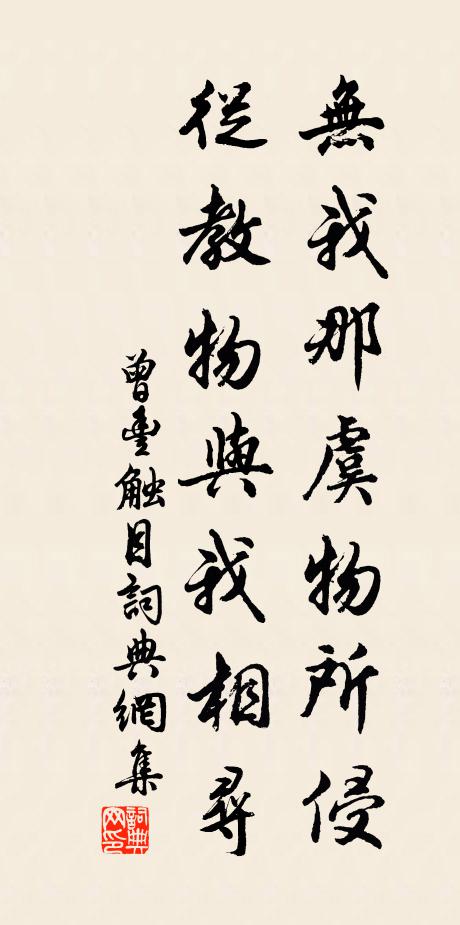 無我那虞物所侵
從教物與我相尋
曾豐触目詞典網集
詞典網印